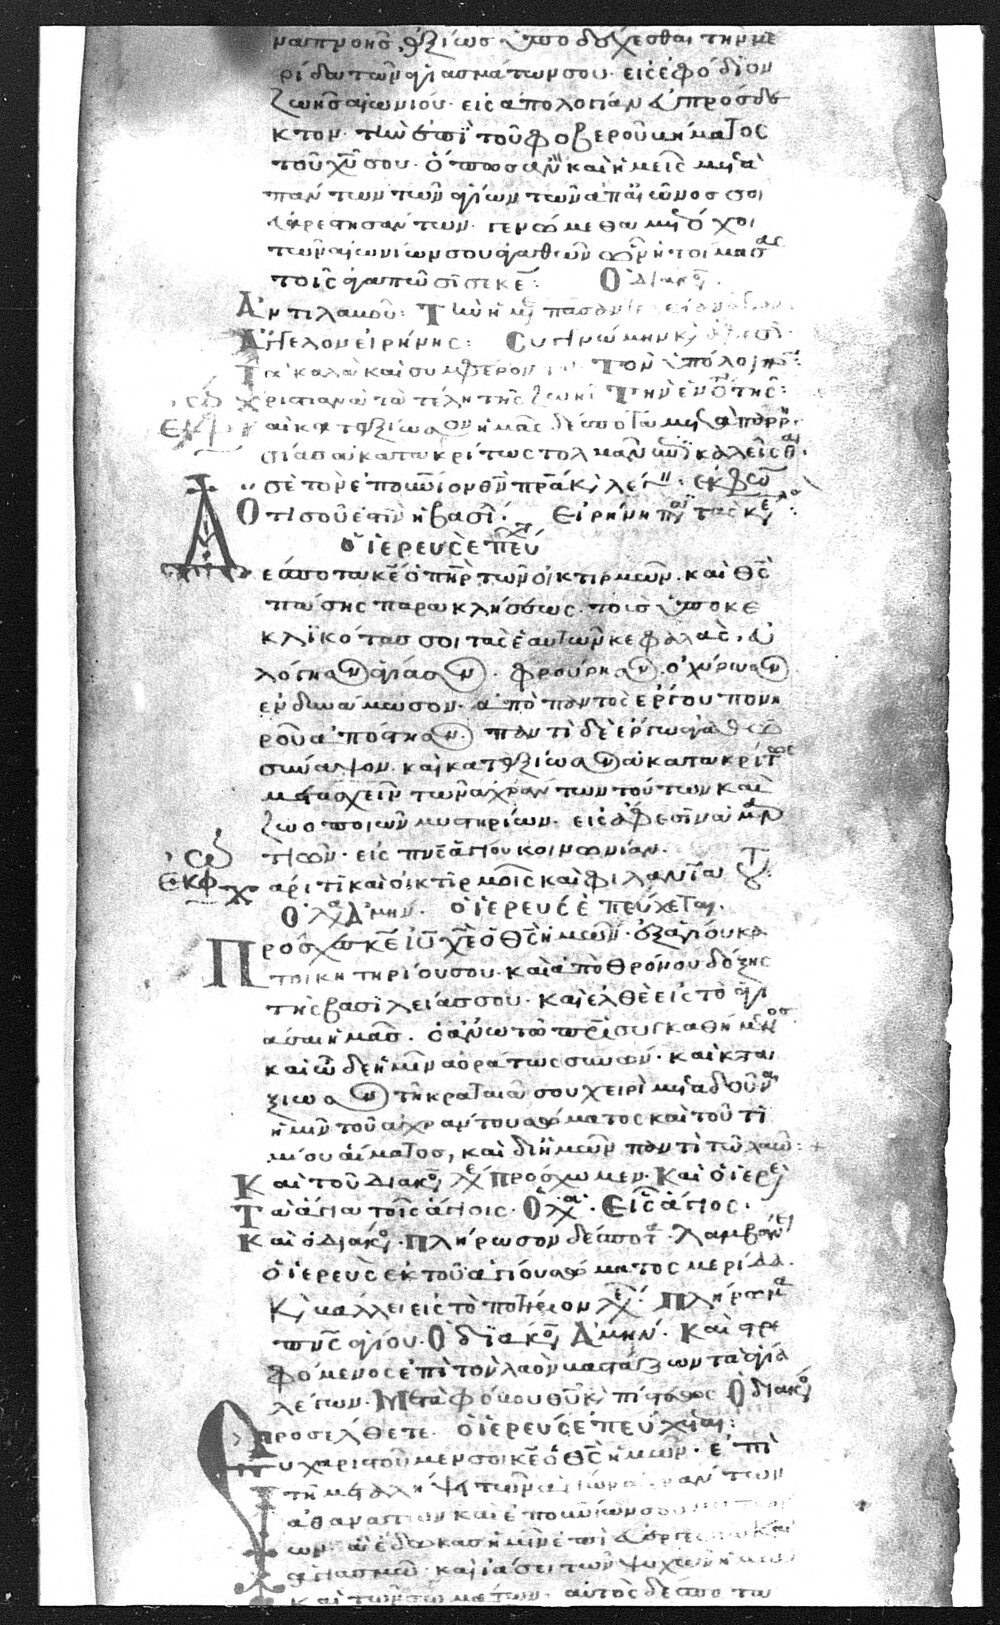 ρίδα τῶν ἁγιασμάτων σου· εἰς ἐφόδιον
ζωῆς αἰωνίου· εἰς ἀπολογίαν εὐπρόσδε
κτον· τὴν ἐπὶ τοῦ φοβεροῦ βήματος
τοῦ χυ σου· ὅπως ἂν καὶ ἡμεῖς μετὰ
πάντων τῶν ἁγίων τῶν ἀπαἰῶνος σοι
εὐαρεστησάντων· γενώμεθα μέτοχοι
τῶν αἰωνίων σου ἀγαθῶν ὧν ἡτοίμασας
τοῖς ἀγαπῶσί σε κε: Ὁ διακο
Ἀντιλαβοῦ: Τὴν ἡμ πᾶσαν
Ἄγγελον εἰρήνης: Συγγνώμην κ, ἄφεσι
Τὰ καλὰ καὶ συμφέρον Τὸν ὑπόλοιπ
Χριστιανὰ τὰ τέλη τῆς ζωῆ Τὴν ἑνότης:
ἐκφω Καὶ καταξίωσον ἡμᾶς δέσποτα μετὰ παρρη
σίας ἀκατακρίτως τολμᾶν ἐπικαλεῖσθαι
σὲ τὸν ἐπουνιον θν πρα κ, λέγ· ἐκφω
Ὅτι σοῦ ἐστιν ἡ βασι: Εἰρήνη πᾶσι τὰς κε
ὁ ἱερεὺς ἐπευ
Δέσποτα κε ὁ πηρ τῶν οἰκτιρμῶν· καὶ θς
πάσης παρακλήσεως· τοὺς ὑποκε
κλικότας σοι τὰς ἑαυτῶν κεφαλάς· εὐ
λόγησον ἁγίασον· φρούρησον ὀχύρωσον
ἐνδυνάμωσον· ἀπὸ παντὸς ἔργου πονη
ροῦ ἀπόστησον παντὶ δὲ ἔργῳ ἀγαθῷ
σύναψον· καὶ καταξίωσον ἀκατακρίτως
μετασχεῖν τῶν ἀχράντων τούτων καὶ
ζωοποιῶν μυστηρίων· εἰς ἄφεσιν ἁμαρ
τιῶν· εἰς πνς ἁγίου κοινωνίαν.
ἐκφω Χάριτι καὶ οἰκτιρμοῖς καὶ φιλανία τ
Ὁ λα Ἀμήν. ὁ ἱερεὺς ἐπεύχεται.
Πρόσχες κε ιυ χε ὁ θς ἡμῶν· ἐξ ἁγίου κα
τοικητηρίου σου· καὶ ἀπὸ θρόνου δόξης
τῆς βασιλείας σου· καὶ ἐλθὲ εἰς τὸ ἁγι
άσαι ἡμᾶς· ὁ ἄνω τῷ πρι συγκαθήμενος
καὶ ὧδε ἡμῖν ἀοράτως συνών· καὶ κατα
ξίωσον τῇ κραταιᾷ σου χειρὶ μεταδοῦναι
ἡμῖν τοῦ ἀχράντου σώματος καὶ τοῦ τι
μίου αἵματος, καὶ δι ἡμῶν παντὶ τῷ λαῷ: +
Καὶ τοῦ διακο, λε Πρόσχωμεν· Καὶ ὁ ἱερε,
Τὰ ἅγια τοῖς ἁγίοις· Ὁ λα· Εἷς ἅγιος.
Καὶ ὁ διακο· Πλήρωσον δέσποτα· λαμβάνει
ὁ ἱερεὺς ἐκ τοῦ ἁγίου σώματος μερίδα.
Κ, βάλλει εἰς τὸ ποτήριον λε: Πλήρωμα
πνς ἁγίου· Ὁ διακο, Ἀμήν· Καὶ στρε
φόμενος ἐπὶ τὸν λαὸν
λέγων. Μετὰ φόβου θυ κ, πίστεως Ὁ διακο,
προσέλθετε· ὁ ἱερεὺς ἐπεύχεται:
Εὐχαριστοῦμέν σοι κε ὁ θς ἡμῶν· ἐπὶ
τῇ μεταλήψει τῶν ἁγίων ἀχράντων
ἀθανάτων καὶ ἐπουνίων σου
ὧν ἔδωκας ἡμῖν ἐπὶ εὐεργεσίᾳ καὶ
ἁγιασμῷ· καὶ ἰάσει τῶν ψυχῶν ἡμῶν
καὶ τῶν σωμάτων· αὐτὸς δέσποτα